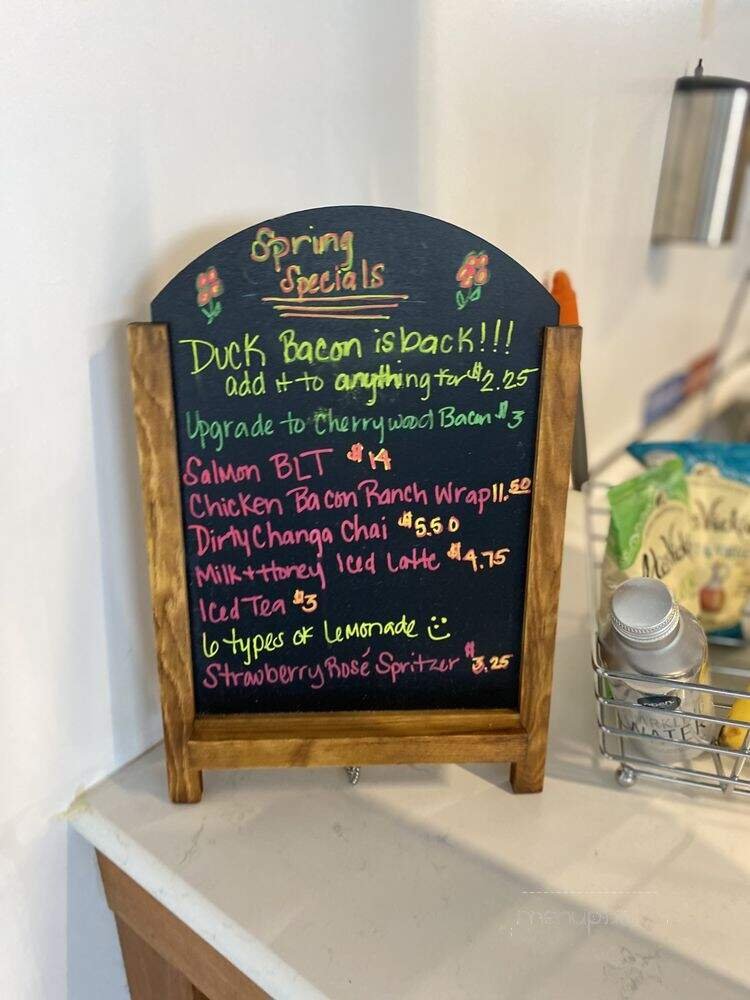 Spring
Specials
Duck Bacon is back!!!
add it to anything for $2.25
Upgrade to Cherrywood Bacon $3
Salmon BLT $14
Chicken Bacon Ranch Wrap 11.50
Dirty Changa Chai $5.50
Milk + Honey Iced Latte $4.75
Iced Tea $3
6 types of Lemonade
Strawberry Rosé Spritzer $3.25
WATER